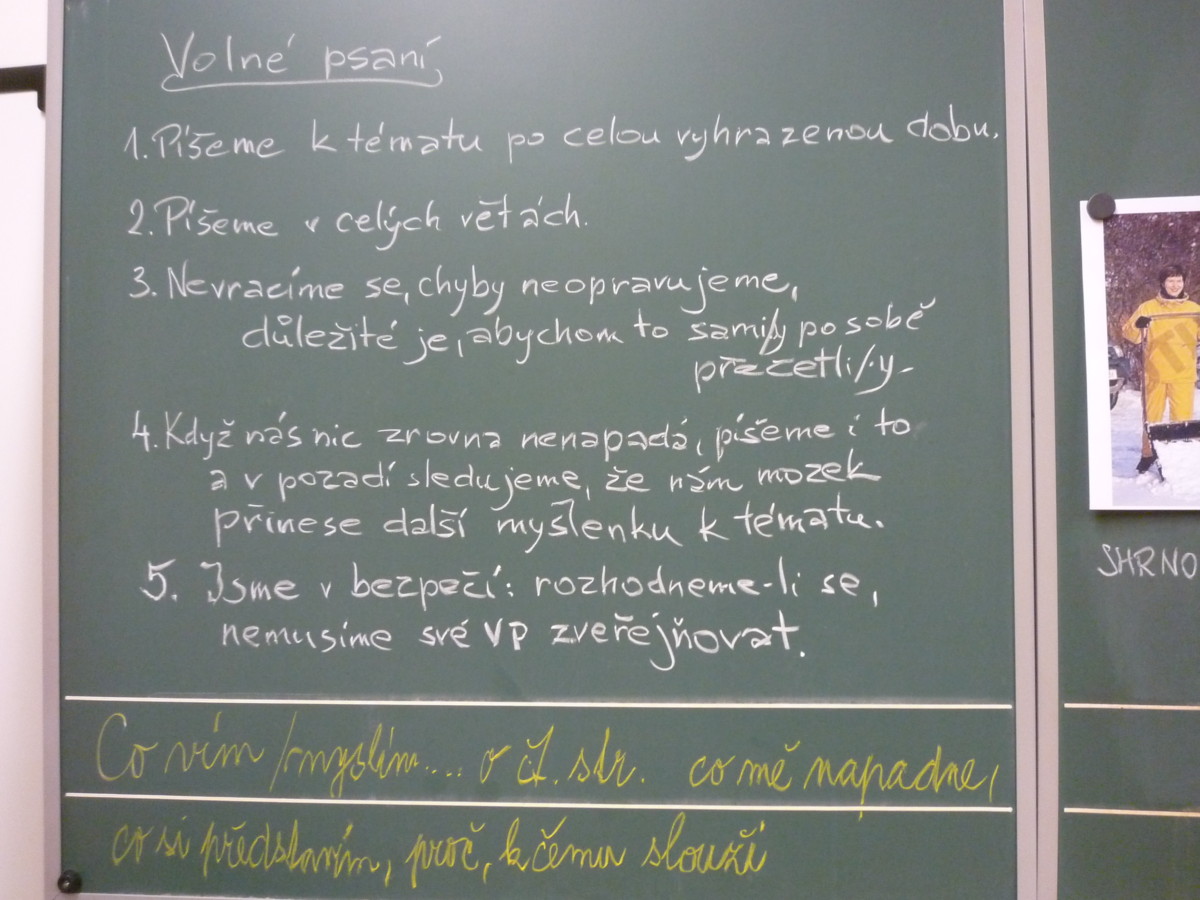 Volné psaní
1. Píšeme k tématu po celou vyhrazenou dobu.
2. Píšeme v celých větách.
3. Nevracíme se, chyby neopravujeme,
důležité je, abychom to sami/y po sobě
přečetli/y.
4. Když nás nic zrovna nenapadá, píšeme i to
a v pozadí sledujeme, že nám mozek
přinese další myšlenku k tématu.
5. Jsme v bezpečí: rozhodneme-li se,
nemusíme své VP zveřejňovat.
Co vím /-myslím.... o čt. str. co mě napadne,
co si představím, proč, k čemu slouží
SHRNO